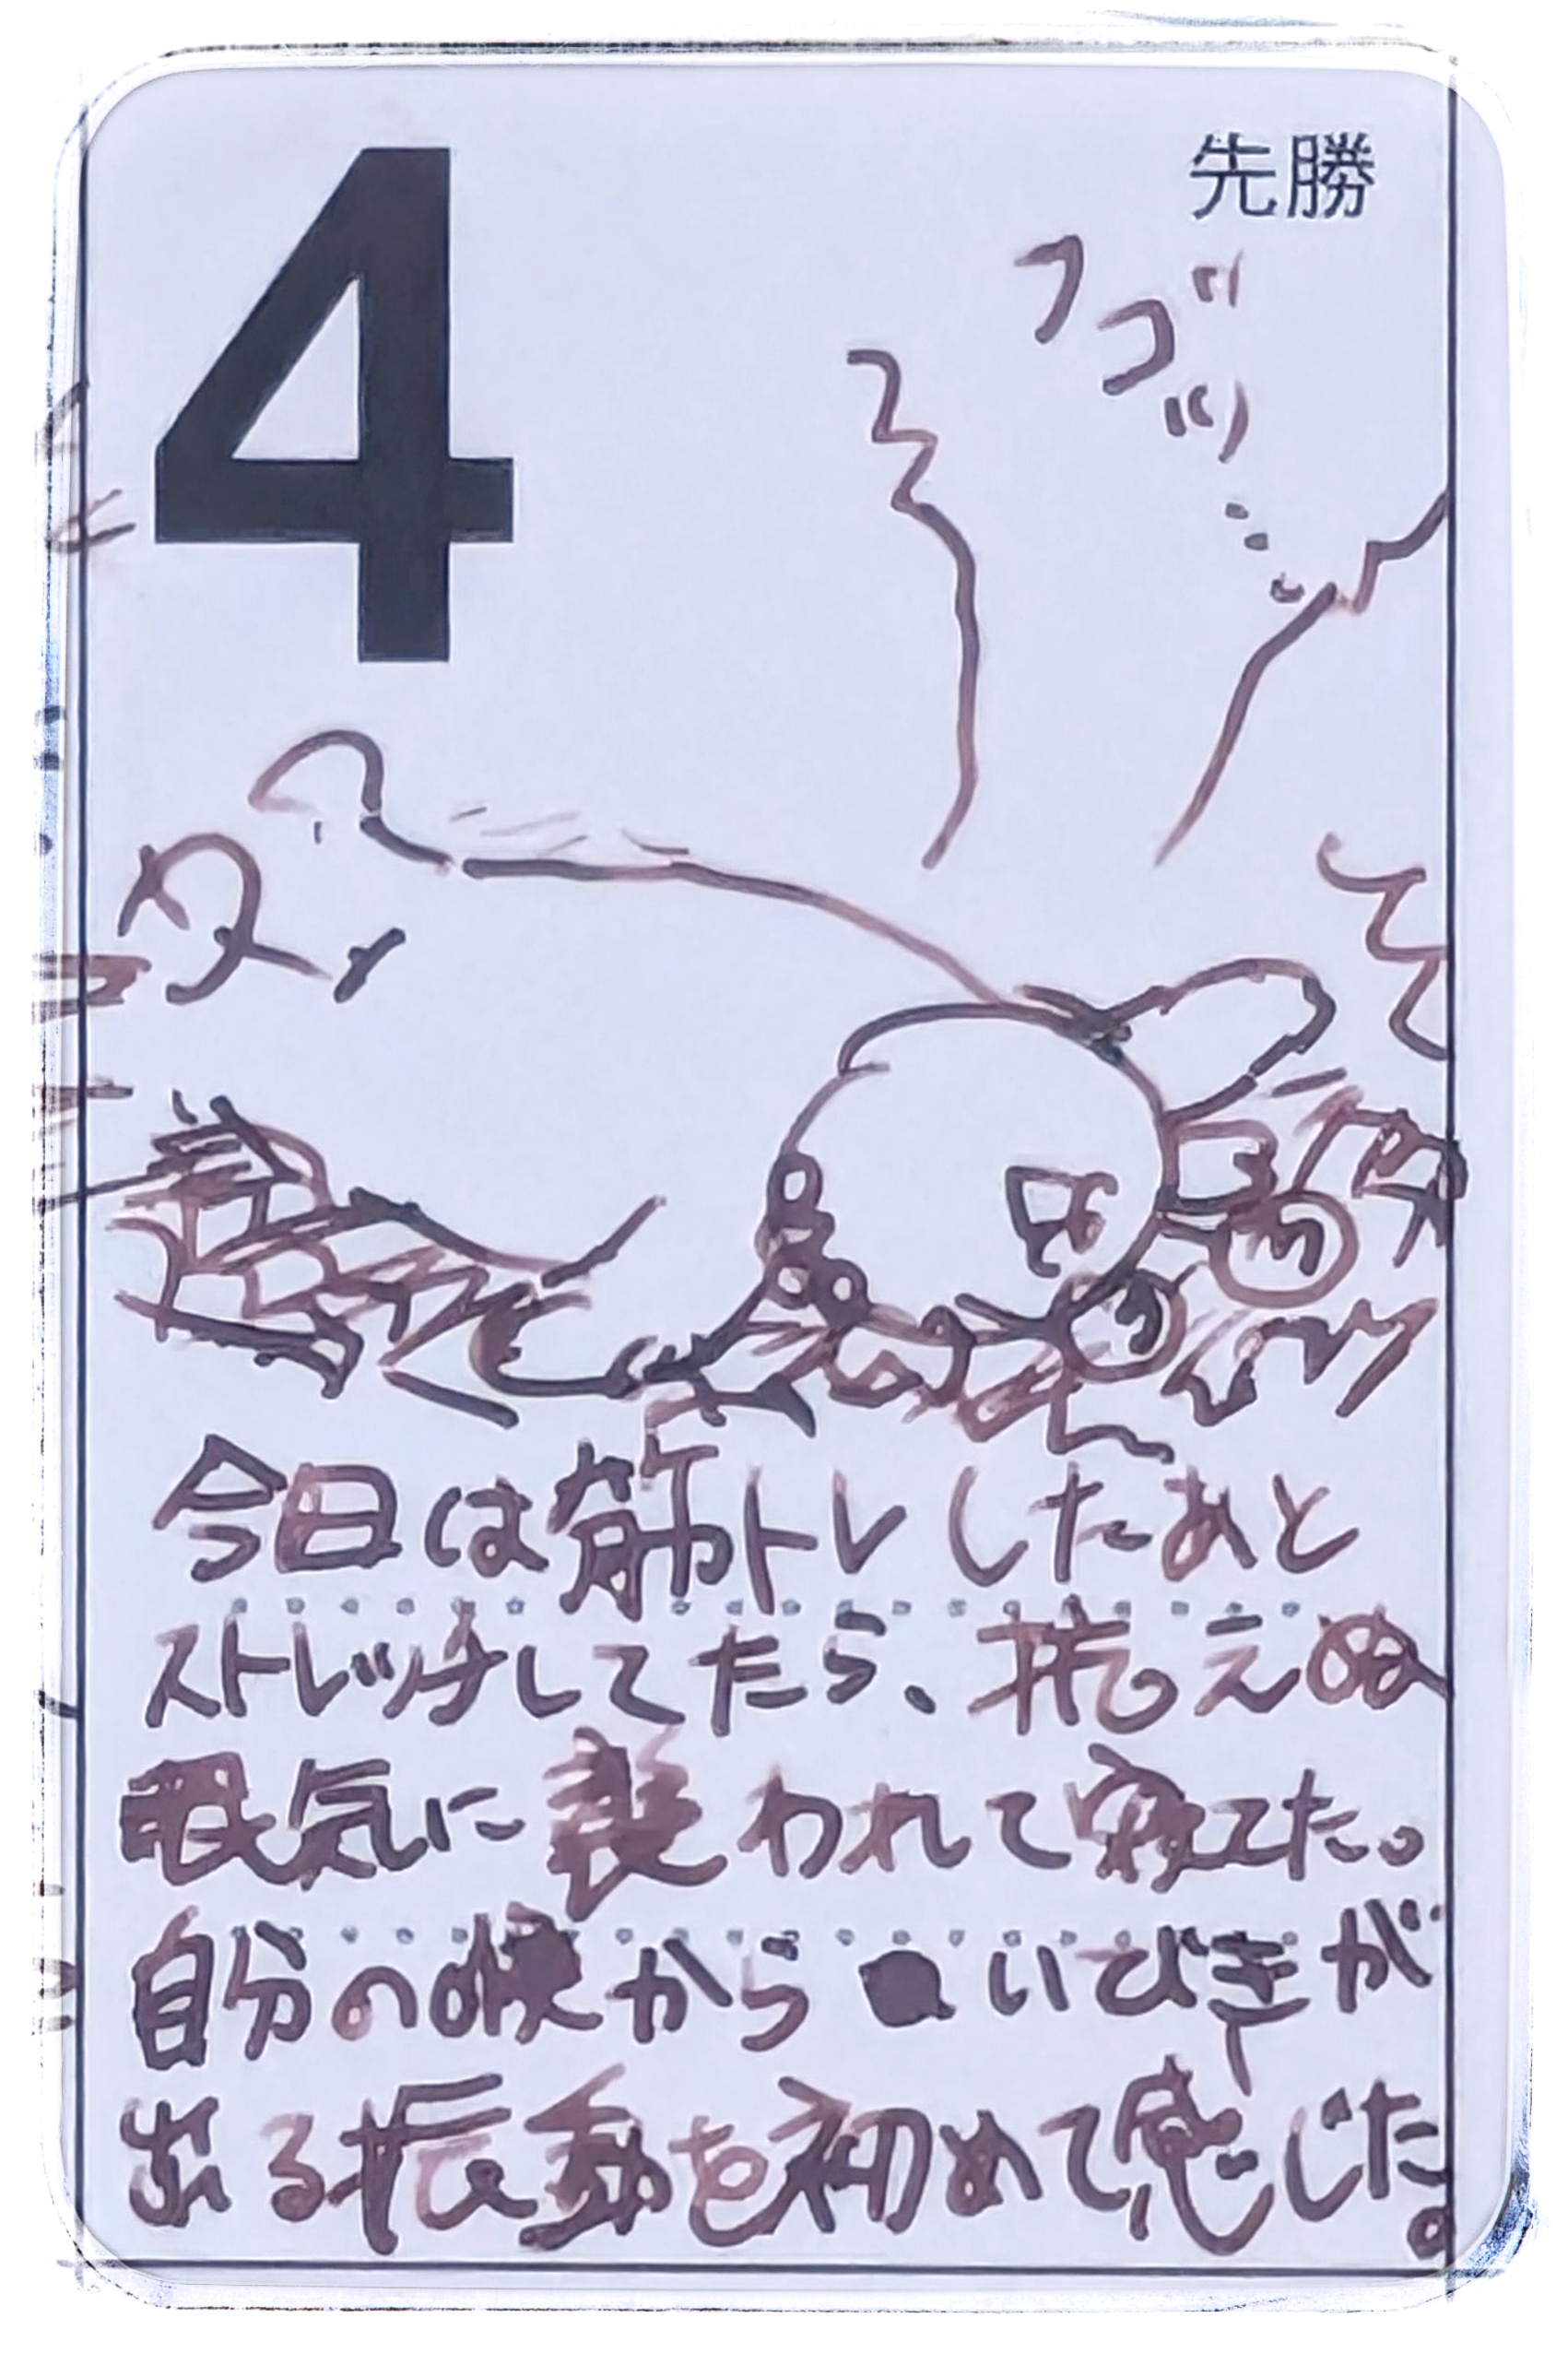 4
先勝
フゴッ…
今日は筋トレしたあと
ストレッチしてたら、抗えぬ
眠気に襲われて寝てた。
自分の喉からいびきが
出る振動を初めて感じた。